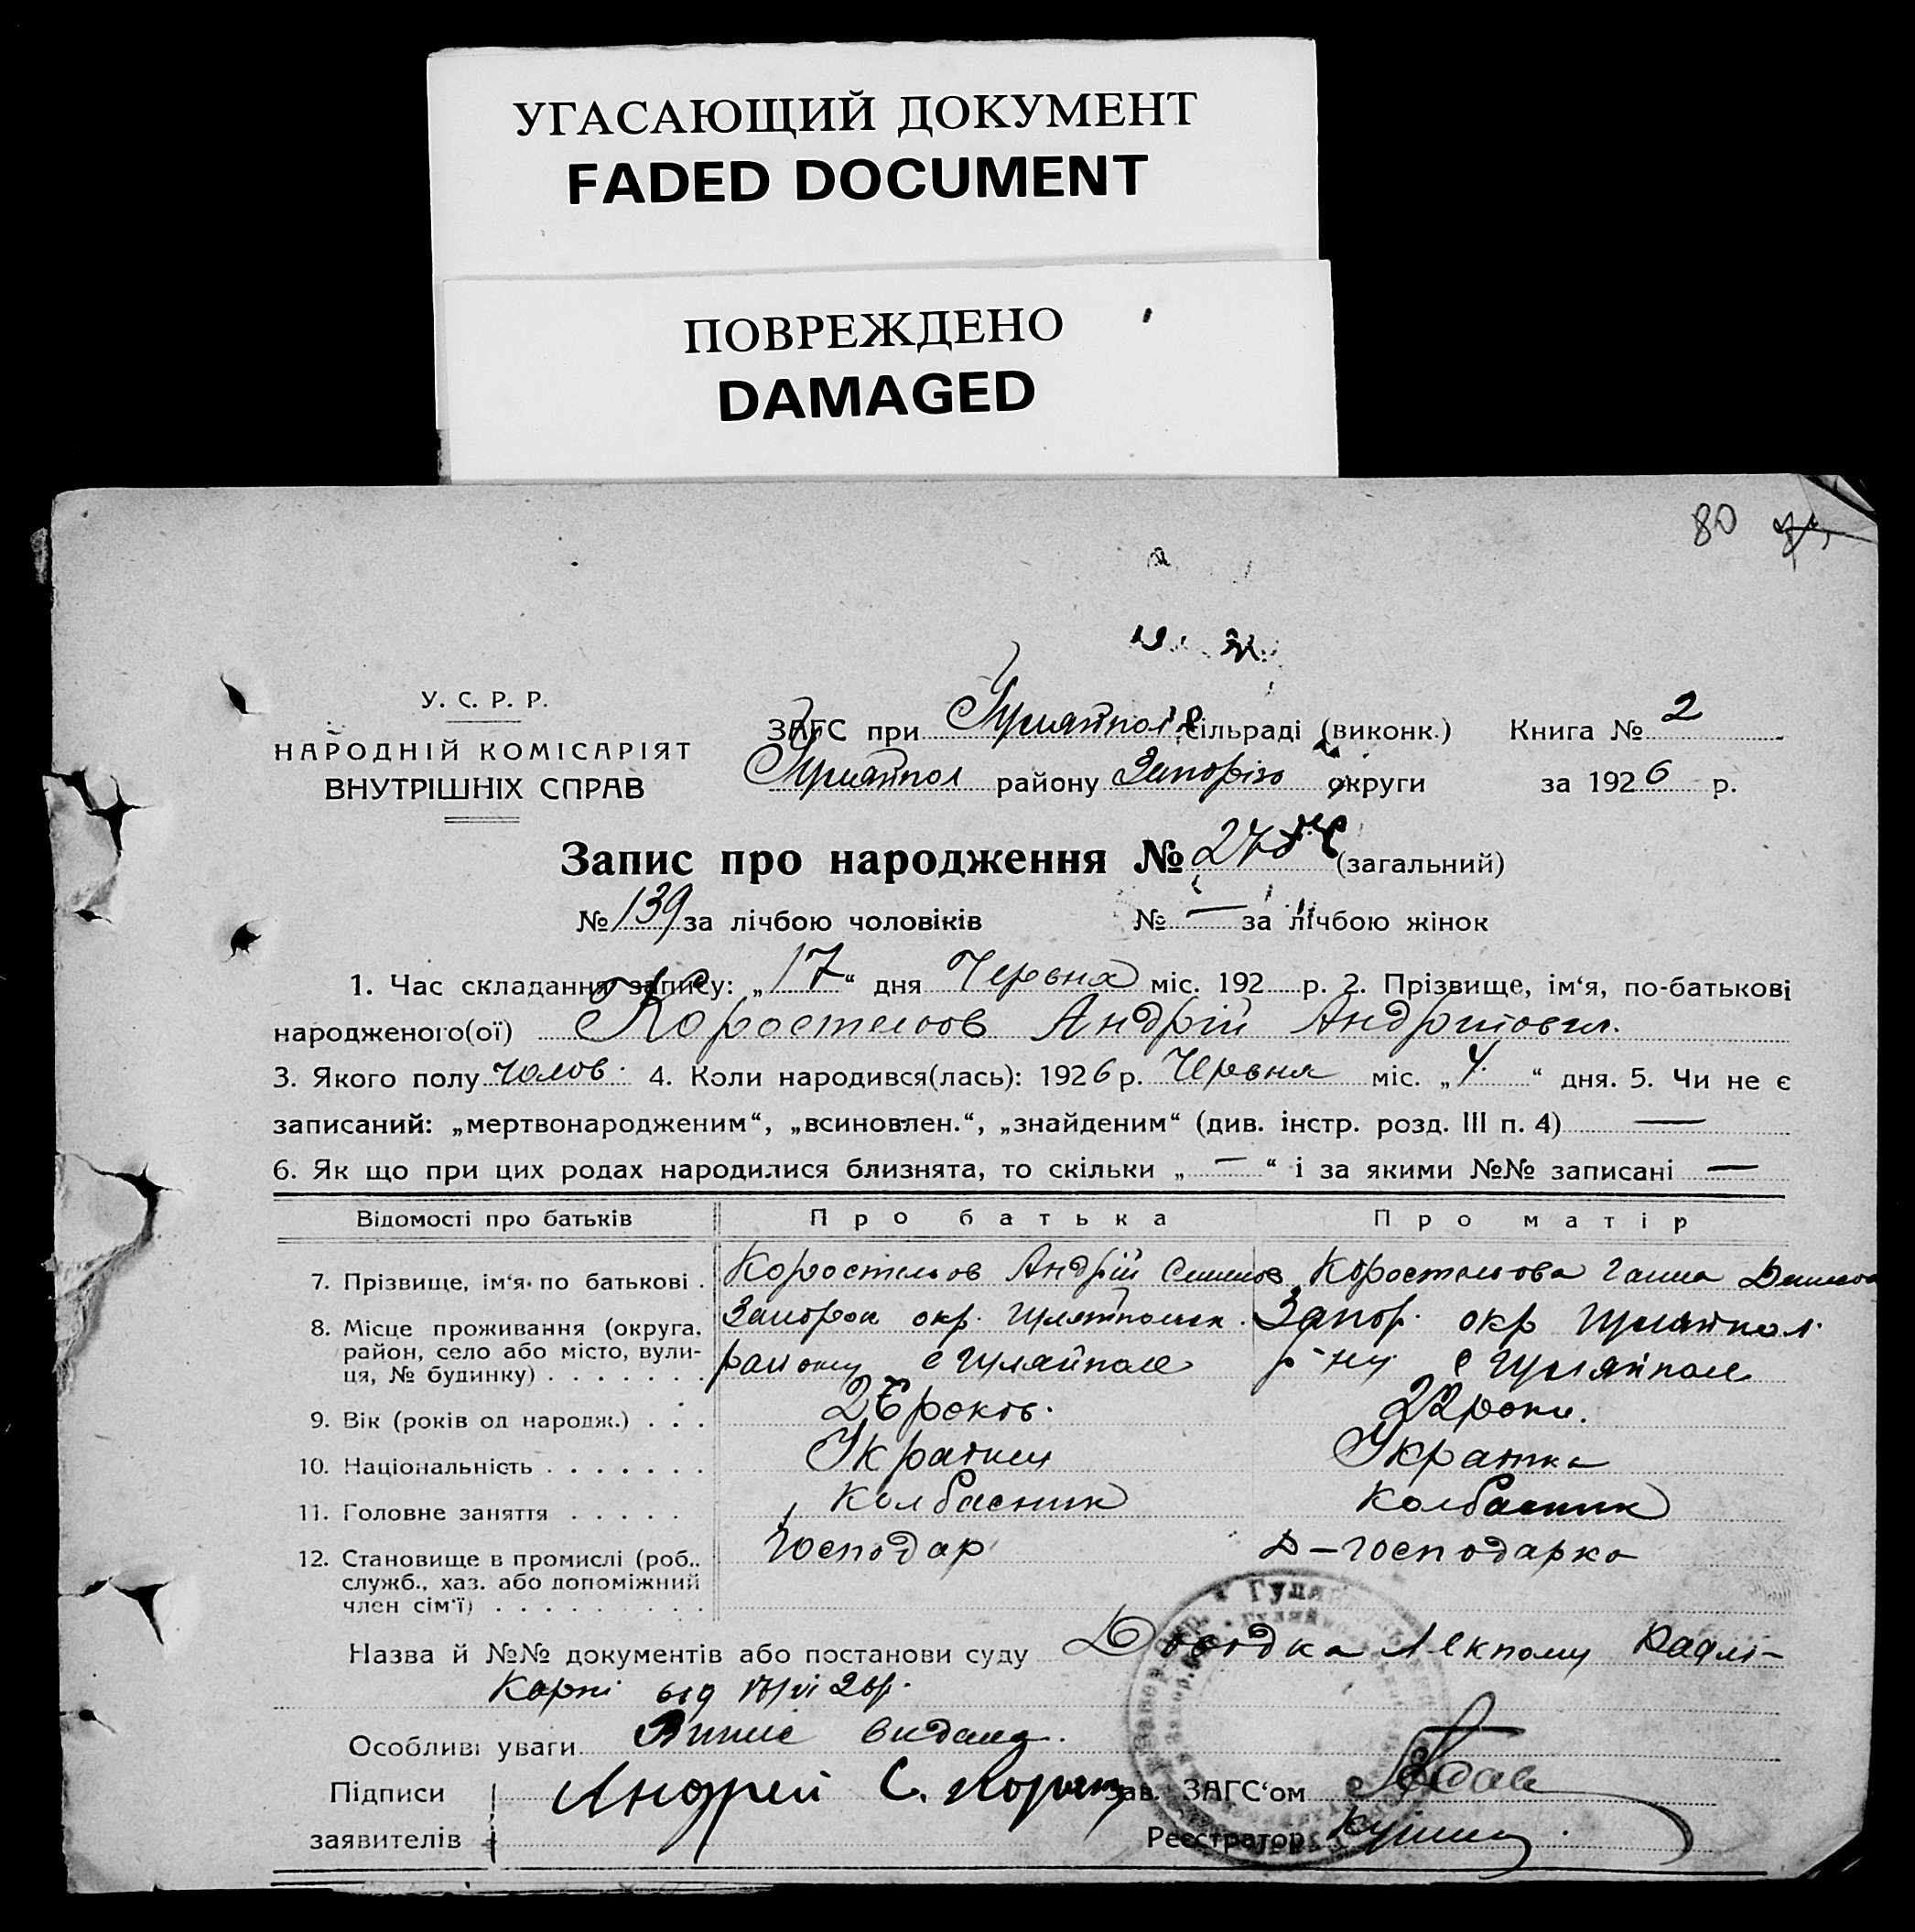 УГАСАЮЩИЙ ДОКУМЕНТ
FADED DOCUMENT
ПОВРЕЖДЕНО
DAMAGED
80
У. С. Р. Р.
НАРОДНІЙ КОМІСАРІЯТ
ВНУТРІШНІХ СПРАВ
ЗАГС при Гуляйпол сільраді (виконк.) Книга № 2
Гуляйпол району Запоріз округи за 1926 р.
Запис про народження № (загальний)
№ 139 за лічбою чоловіків № — за лічбою жінок
1. Час складання запису: „17“ дня Червня міс. 192 р. 2. Прізвище, ім‘я, по-батькові
народженого(ої) Коростельов Андрій Андрійович.
3. Якого полу чолов. 4. Коли народився(лась): 1926 р. Червня міс. „4“ дня. 5. Чи не є
записаний: „мертвонародженим“, „всиновлен.“, „знайденим“ (див. інстр. розд. III п. 4) —
6. Як що при цих родах народилися близнята, то скільки „—“ і за якими №№ записані —
Відомості про батьків Про батька Про матір
7. Прізвище, ім‘я по батькові . Коростельов Андрій Семенов Коростельова Ганна
8. Місце проживання (округа, район, село або місто, вулиця, № будинку) . . . . . . .
окр. Гуляйпольск. Запор. окр Гуляйпол.
району с Гуляйполе р-ну с Гуляйполе
9. Вік (років од народж.) . . . 26 років. 22 роки.
10. Національність . . . . . . . Українец Українка
11. Головне заняття . . . . . Колбасник Колбасник
12. Становище в промислі (роб.. служб., хаз. або допоміжний член сім‘ї) . . . . . . . . .
Господар Д-господарка
Назва й №№ документів або постанови суду Довідка Лекпому
від 17/VI 26р.
Особливі уваги Випис видана.
Підписи Андрей С. Зав. ЗАГС‘ом
заявителів Реєстратор